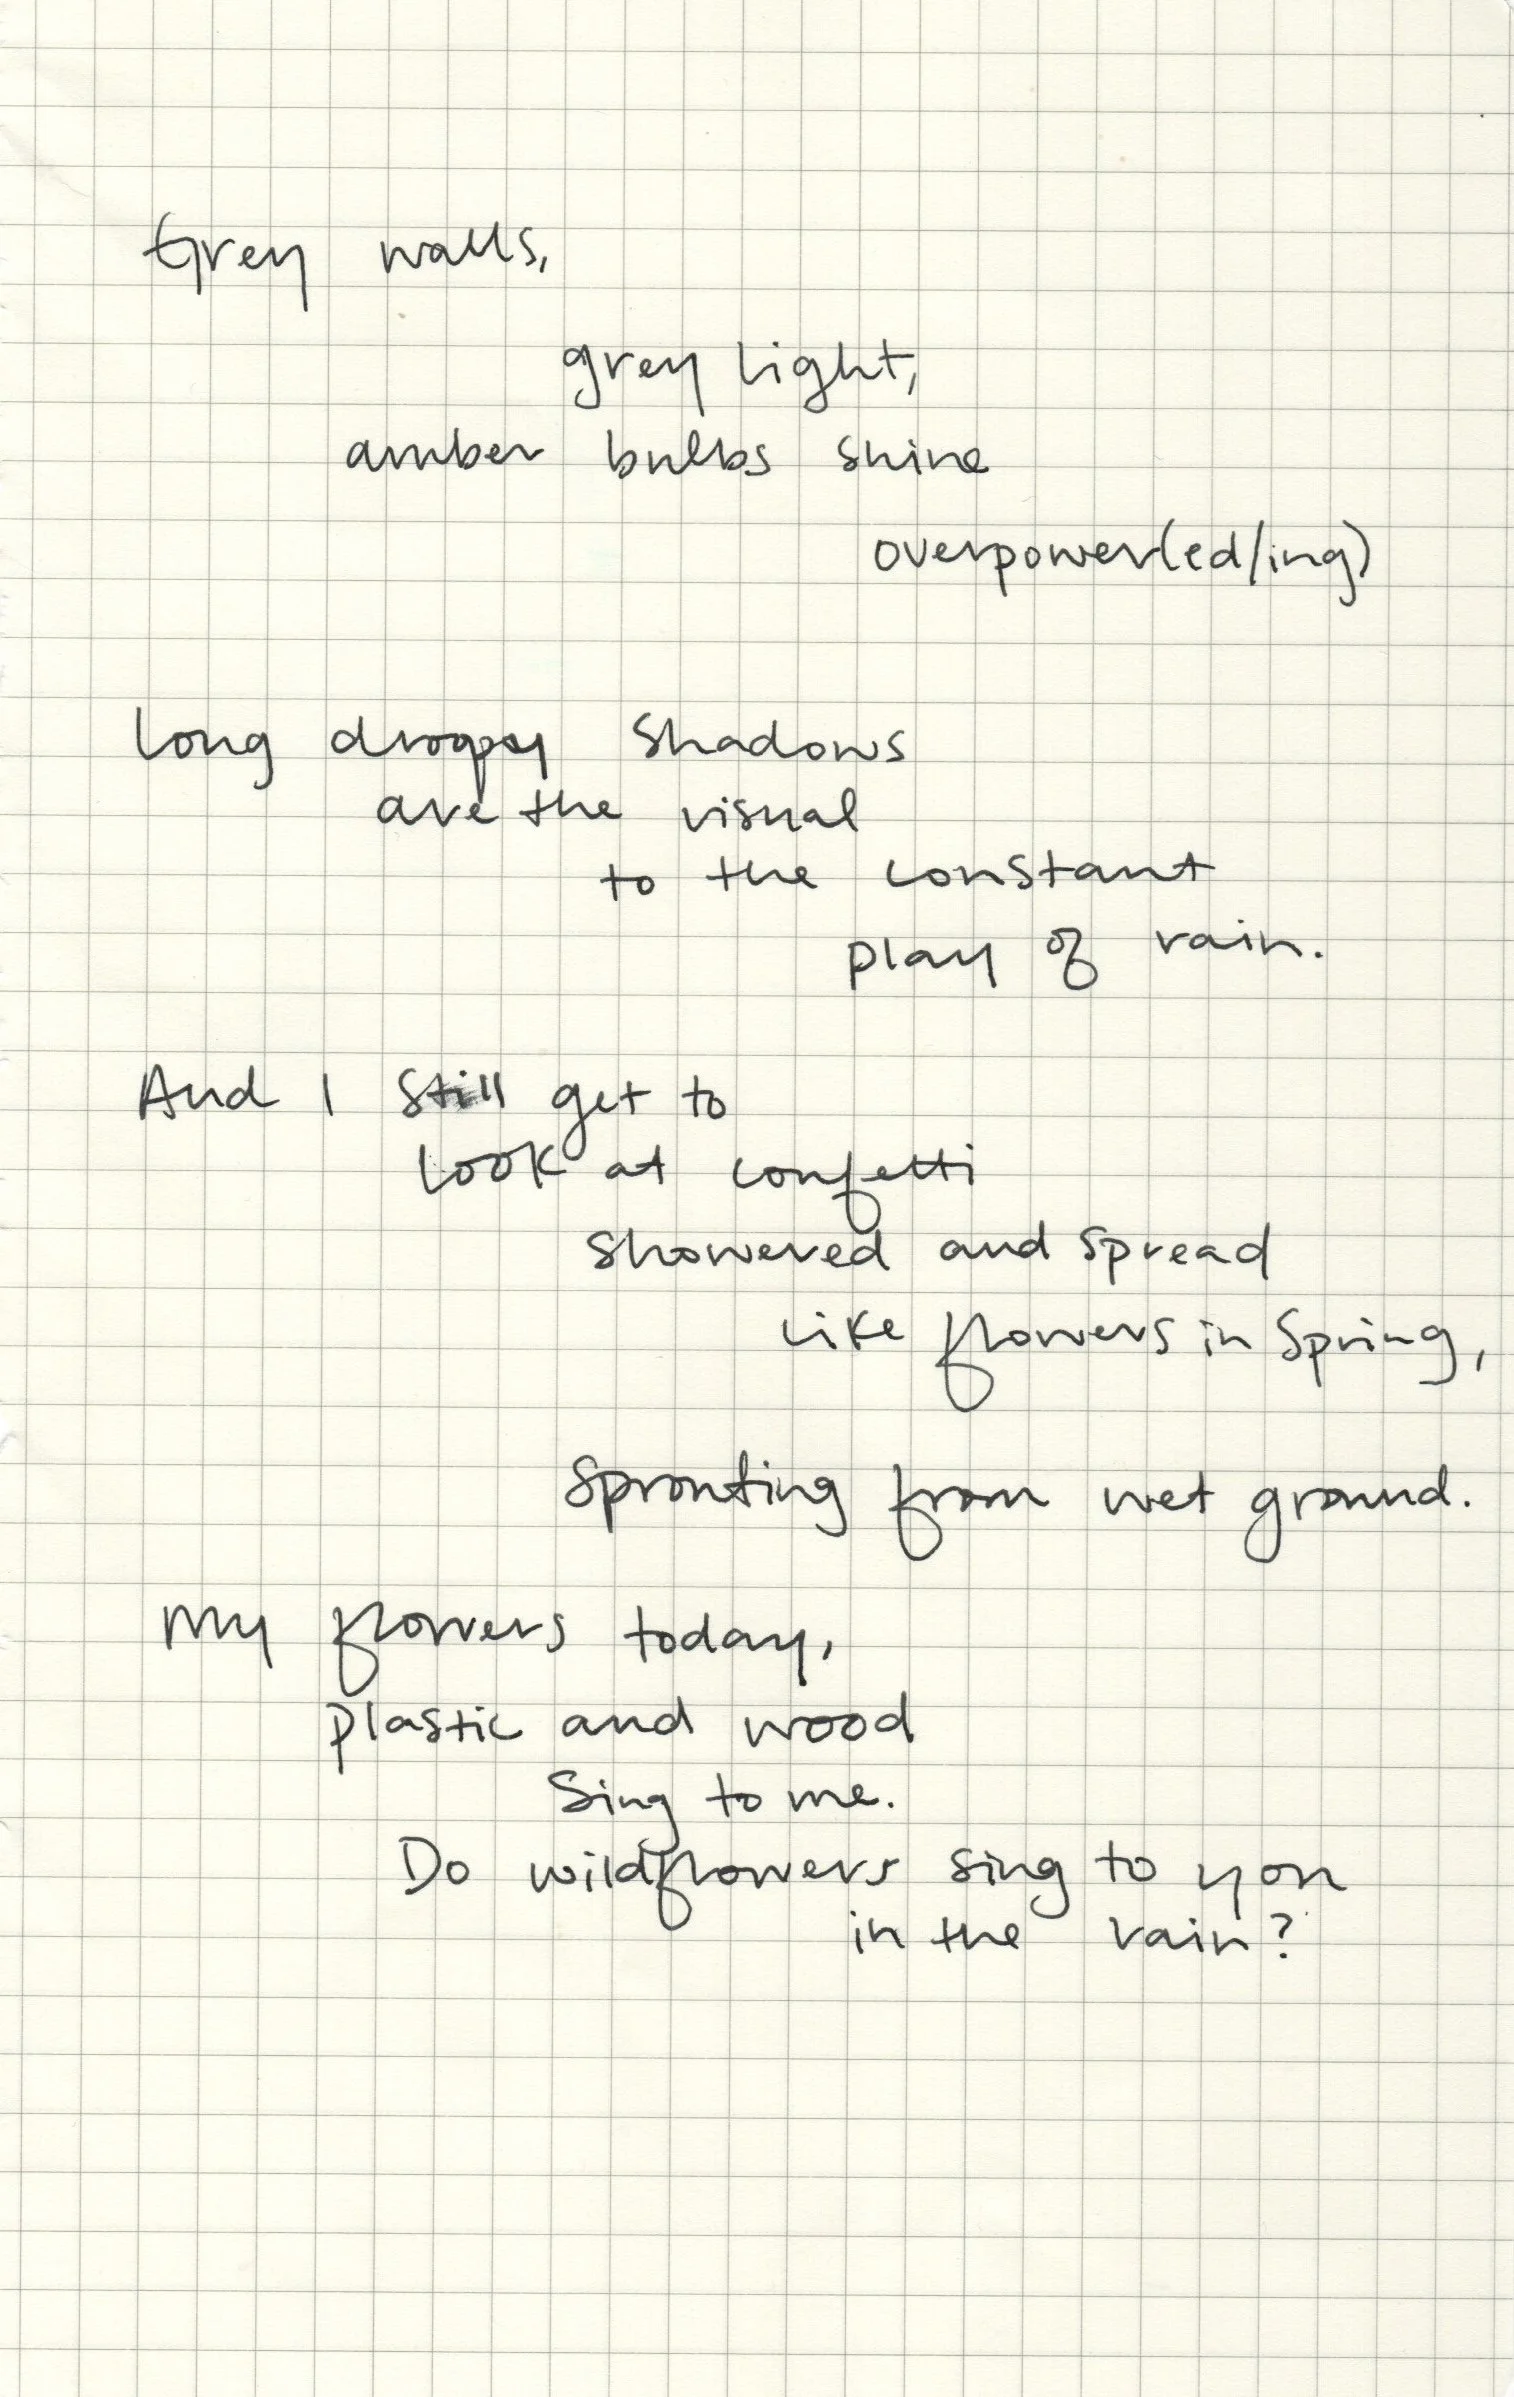 Grey walls,
grey light,
amber bulbs shine
overpower(ed/ing)
Long dropsy shadows
are the visual
to the constant
play of rain.
And I still get to
look at confetti
showered and spread
like flowers in Spring,
sprouting from wet ground.
My flowers today,
plastic and wood
Sing to me.
Do wildflowers sing to you
in the rain?